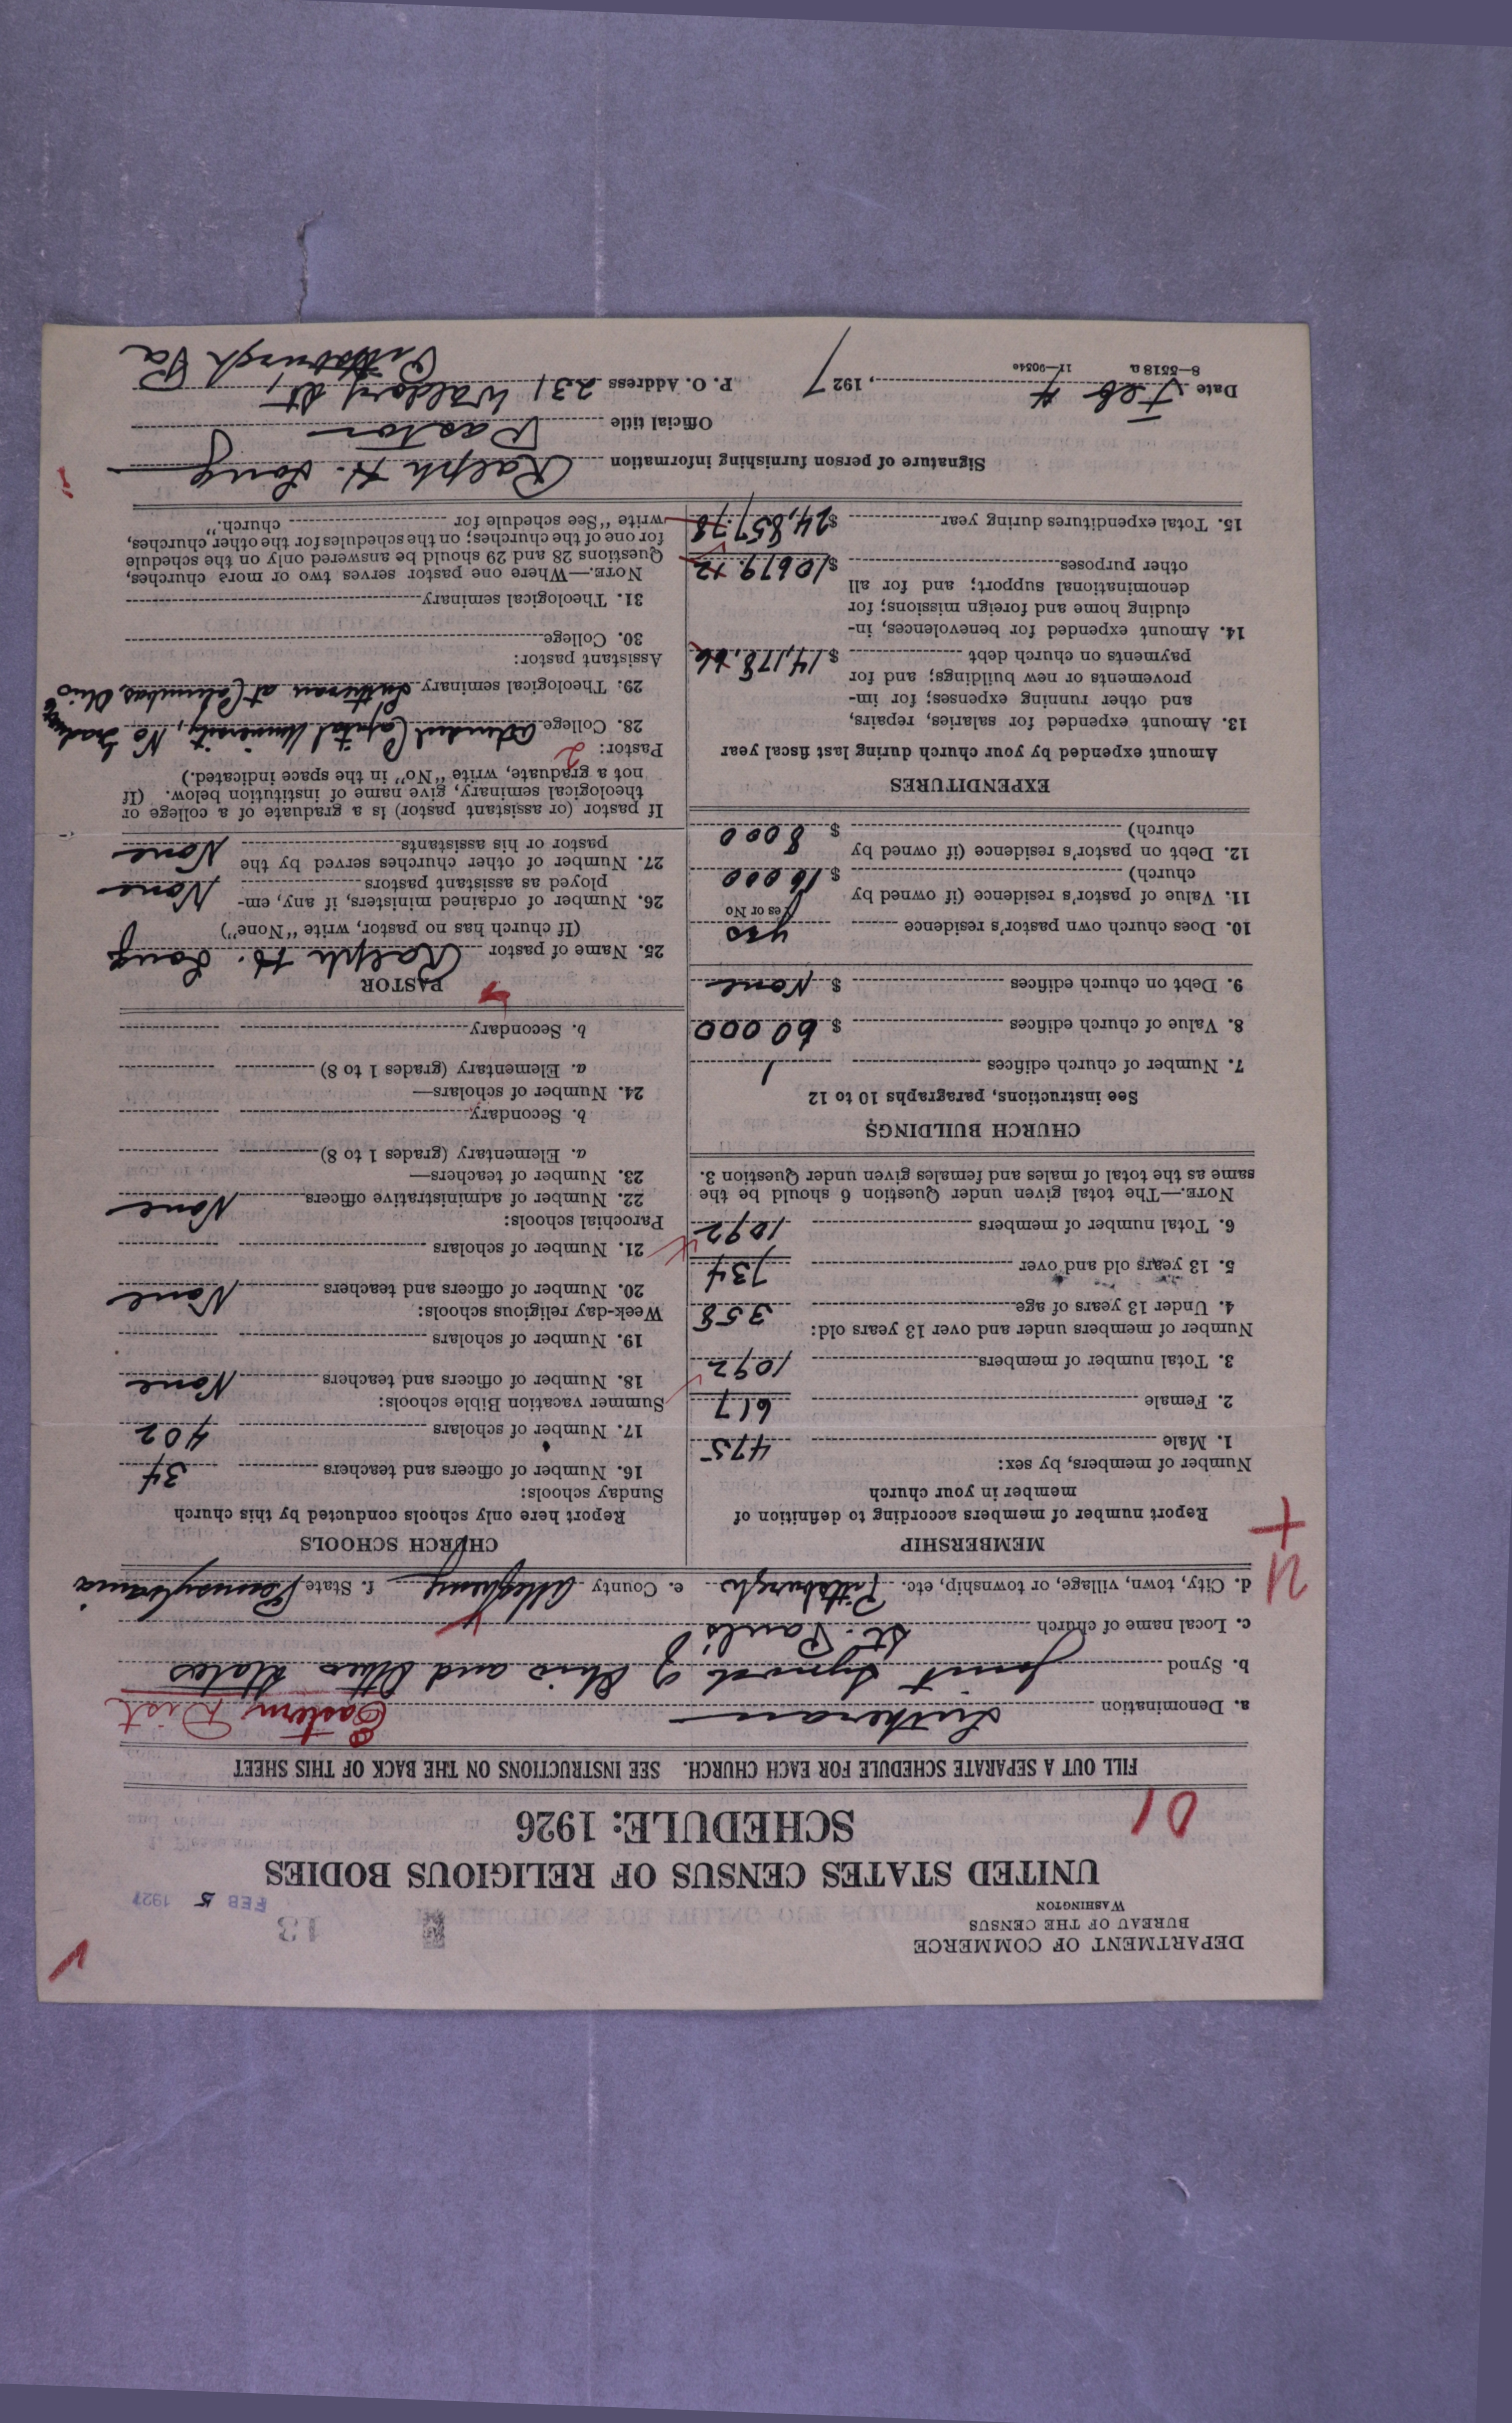 DEPARTMENT OF COMMERCE
BUREAU OF THE CENSUS
WASHINGTON
13
FEB 5 1927
UNITED STATES CENSUS OF RELIGIOUS BODIES
SCHEDULE: 1926
01
FILL OUT A SEPARATE SCHEDULE FOR EACH CHURCH. SEE INSTRUCTIONS ON THE BACK OF THIS SHEET
a. Denomination Lutheran Eastern Dist
b. Synod Joint Synod of Ohio and Other States
c. Local name of church St. Paul's
d. City, town, village, or township, etc. Pittsburgh e. County Allegheny f. State Pennsylvania
MEMBERSHIP
Report number of members according to definition of
member in your church
Number of members, by sex:
1. Male 475
2. Female 617
3. Total number of members 1092
Number of members under and over 13 years old:
4. Under 13 years of age 358
5. 13 years old and over 734
6. Total number of members 1092
NOTE.—The total given under Question 6 should be the
same as the total of males and females given under Question 3.
CHURCH BUILDINGS
See instructions, paragraphs 10 to 12
7. Number of church edifices 1
8. Value of church edifices $ 60 000
9. Debt on church edifices $ None
10. Does church own pastor's residence yes
Yes or No
11. Value of pastor's residence (if owned by
church) $ 16 000
12. Debt on pastor's residence (if owned by
church) $ 8000
EXPENDITURES
Amount expended by your church during last fiscal year
13. Amount expended for salaries, repairs,
and other running expenses; for im-
provements or new buildings; and for
payments on church debt $ 14,178.66
14. Amount expended for benevolences, in-
cluding home and foreign missions; for
denominational support; and for all
other purposes $ 10679.12
15. Total expenditures during year $ 24,857.78
CHURCH SCHOOLS
Report here only schools conducted by this church
Sunday schools:
16. Number of officers and teachers 34
17. Number of scholars 402
Summer vacation Bible schools:
18. Number of officers and teachers None
19. Number of scholars
Week-day religious schools:
20. Number of officers and teachers None
21. Number of scholars
Parochial schools:
22. Number of administrative officers None
23. Number of teachers—
a. Elementary (grades 1 to 8)
b. Secondary
24. Number of scholars—
a. Elementary (grades 1 to 8)
b. Secondary
PASTOR
25. Name of pastor Ralph H. Long
(If church has no pastor, write "None")
26. Number of ordained ministers, if any, em-
ployed as assistant pastors None
27. Number of other churches served by the
pastor or his assistants None
If pastor (or assistant pastor) is a graduate of a college or
theological seminary, give name of institution below. (If
not a graduate, write "No" in the space indicated.)
Pastor: 2
28. College attended Capital University, No Graduate
29. Theological seminary Lutheran at Columbus Ohio
Assistant pastor:
30. College
31. Theological seminary
NOTE.—Where one pastor serves two or more churches,
Questions 28 and 29 should be answered only on the schedule
for one of the churches; on the schedules for the other churches,
write "See schedule for church."
Signature of person furnishing information Ralph H. Long
Official title Pastor
Date Feb 4, 1927 P. O. Address 231 Waldorf St
Pittsburgh Pa
8—5518a 11—9054c